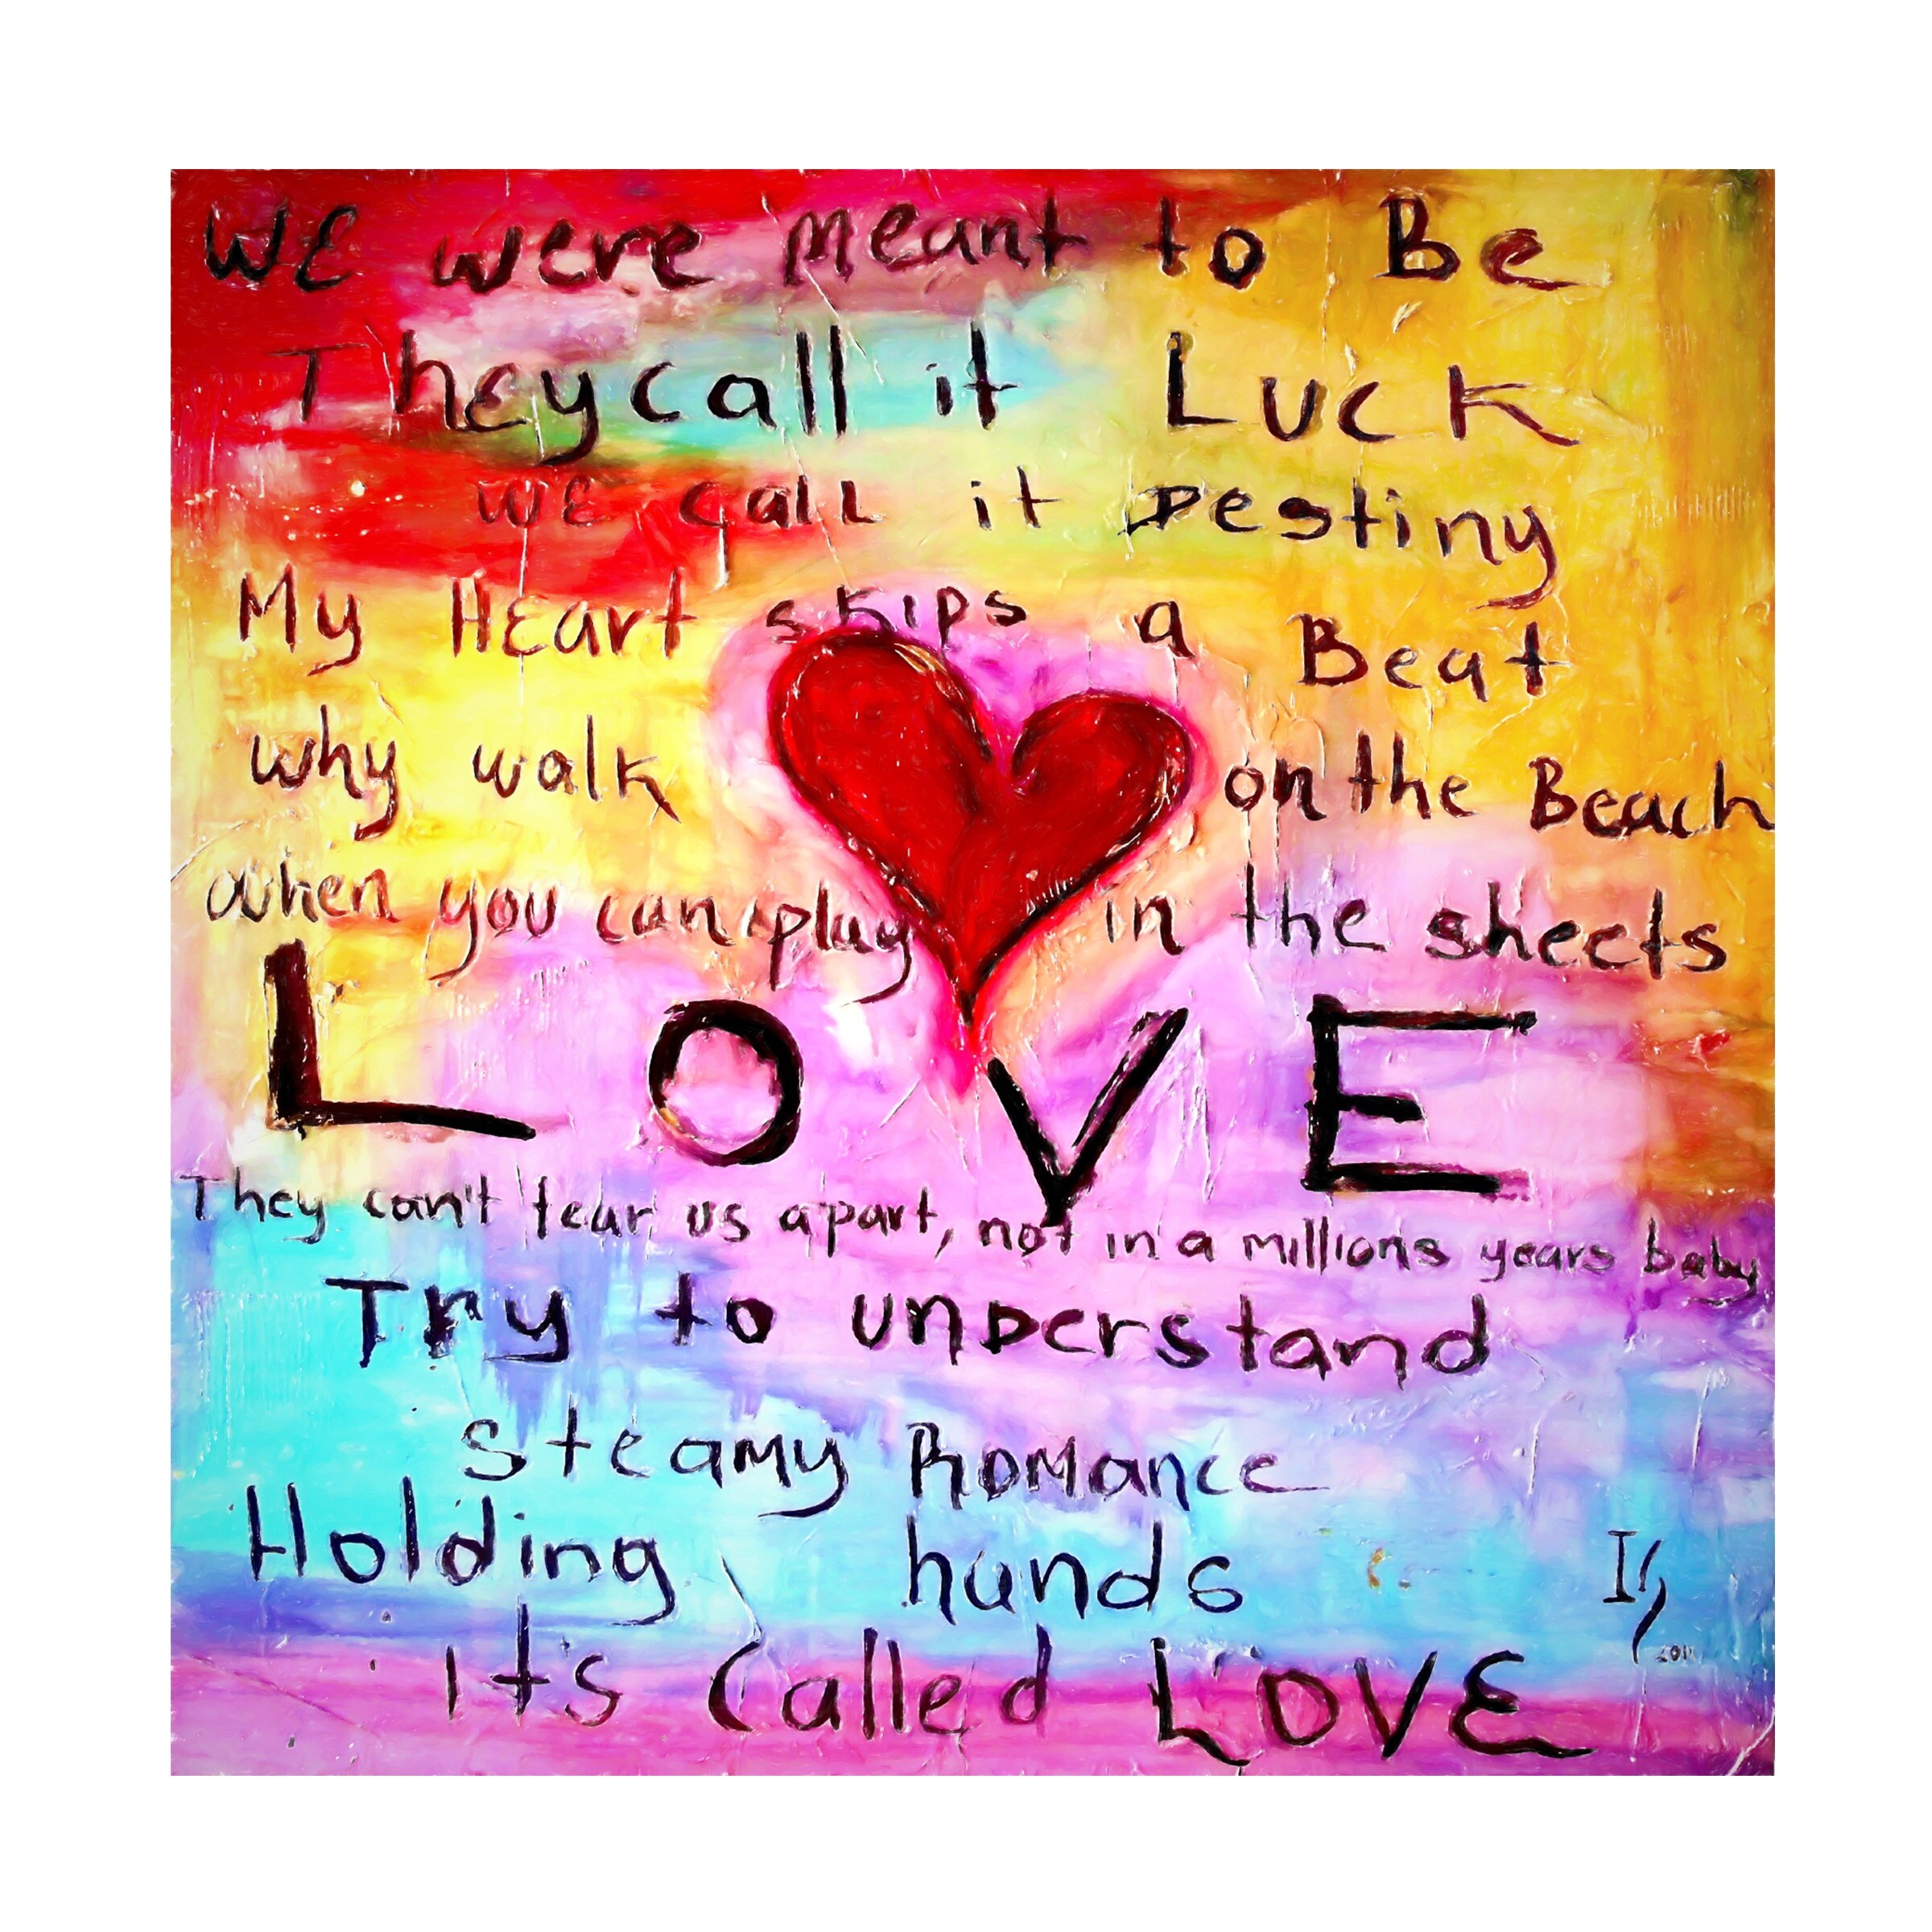 WE were meant to Be
They call it Luck
WE call it Destiny
My Heart skips a Beat
why walk on the Beach
when you can play in the sheets
LOVE
They can't tear us apart, not in a millions years baby
Try to unDerstand
steamy Romance
Holding hands
it's called LOVE